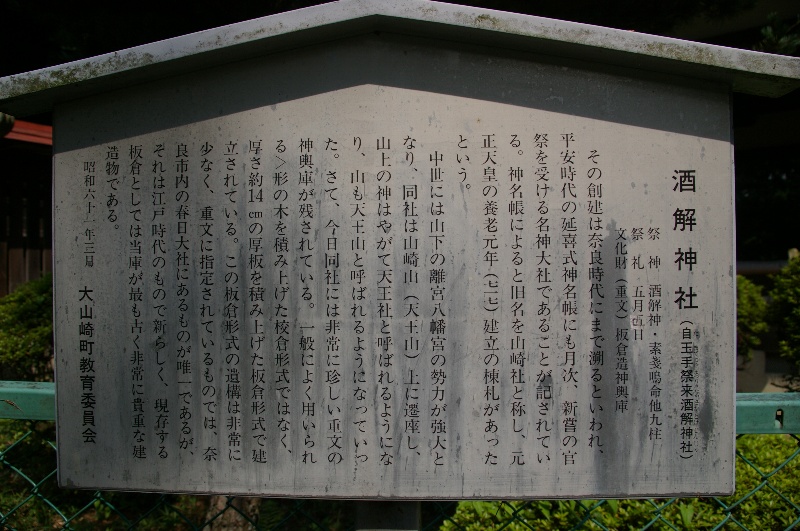 酒解神社（自玉手祭来酒解神社）
祭神　酒解神・素戔嗚命他九柱
祭礼　五月五日
文化財（重文）板倉造神輿庫
その創建は奈良時代にまで溯るといわれ、
平安時代の延喜式神名帳にも月次、新嘗の官
祭を受ける名神大社であることが記されてい
る。神名帳によると旧名を山崎社と称し、元
正天皇の養老元年（七一七）建立の棟札があった
という。
中世には山下の離宮八幡宮の勢力が強大と
なり、同社は山崎山（天王山）上に遷座し、
山上の神はやがて天王社と呼ばれるようにな
り、山も天王山と呼ばれるようになっていっ
た。さて、今日同社には非常に珍しい重文の
神輿庫が残されている。一般によく用いられ
る＞形の木を積み上げた校倉形式ではなく、
厚さ約14㎝の厚板を積み上げた板倉形式で建
立されている。この板倉形式の遺構は非常に
少なく、重文に指定されているものでは、奈
良市内の春日大社にあるものが唯一であるが、
それは江戸時代のもので新らしく、現存する
板倉としては当庫が最も古く非常に貴重な建
造物である。
昭和六十一年三月　大山崎町教育委員会